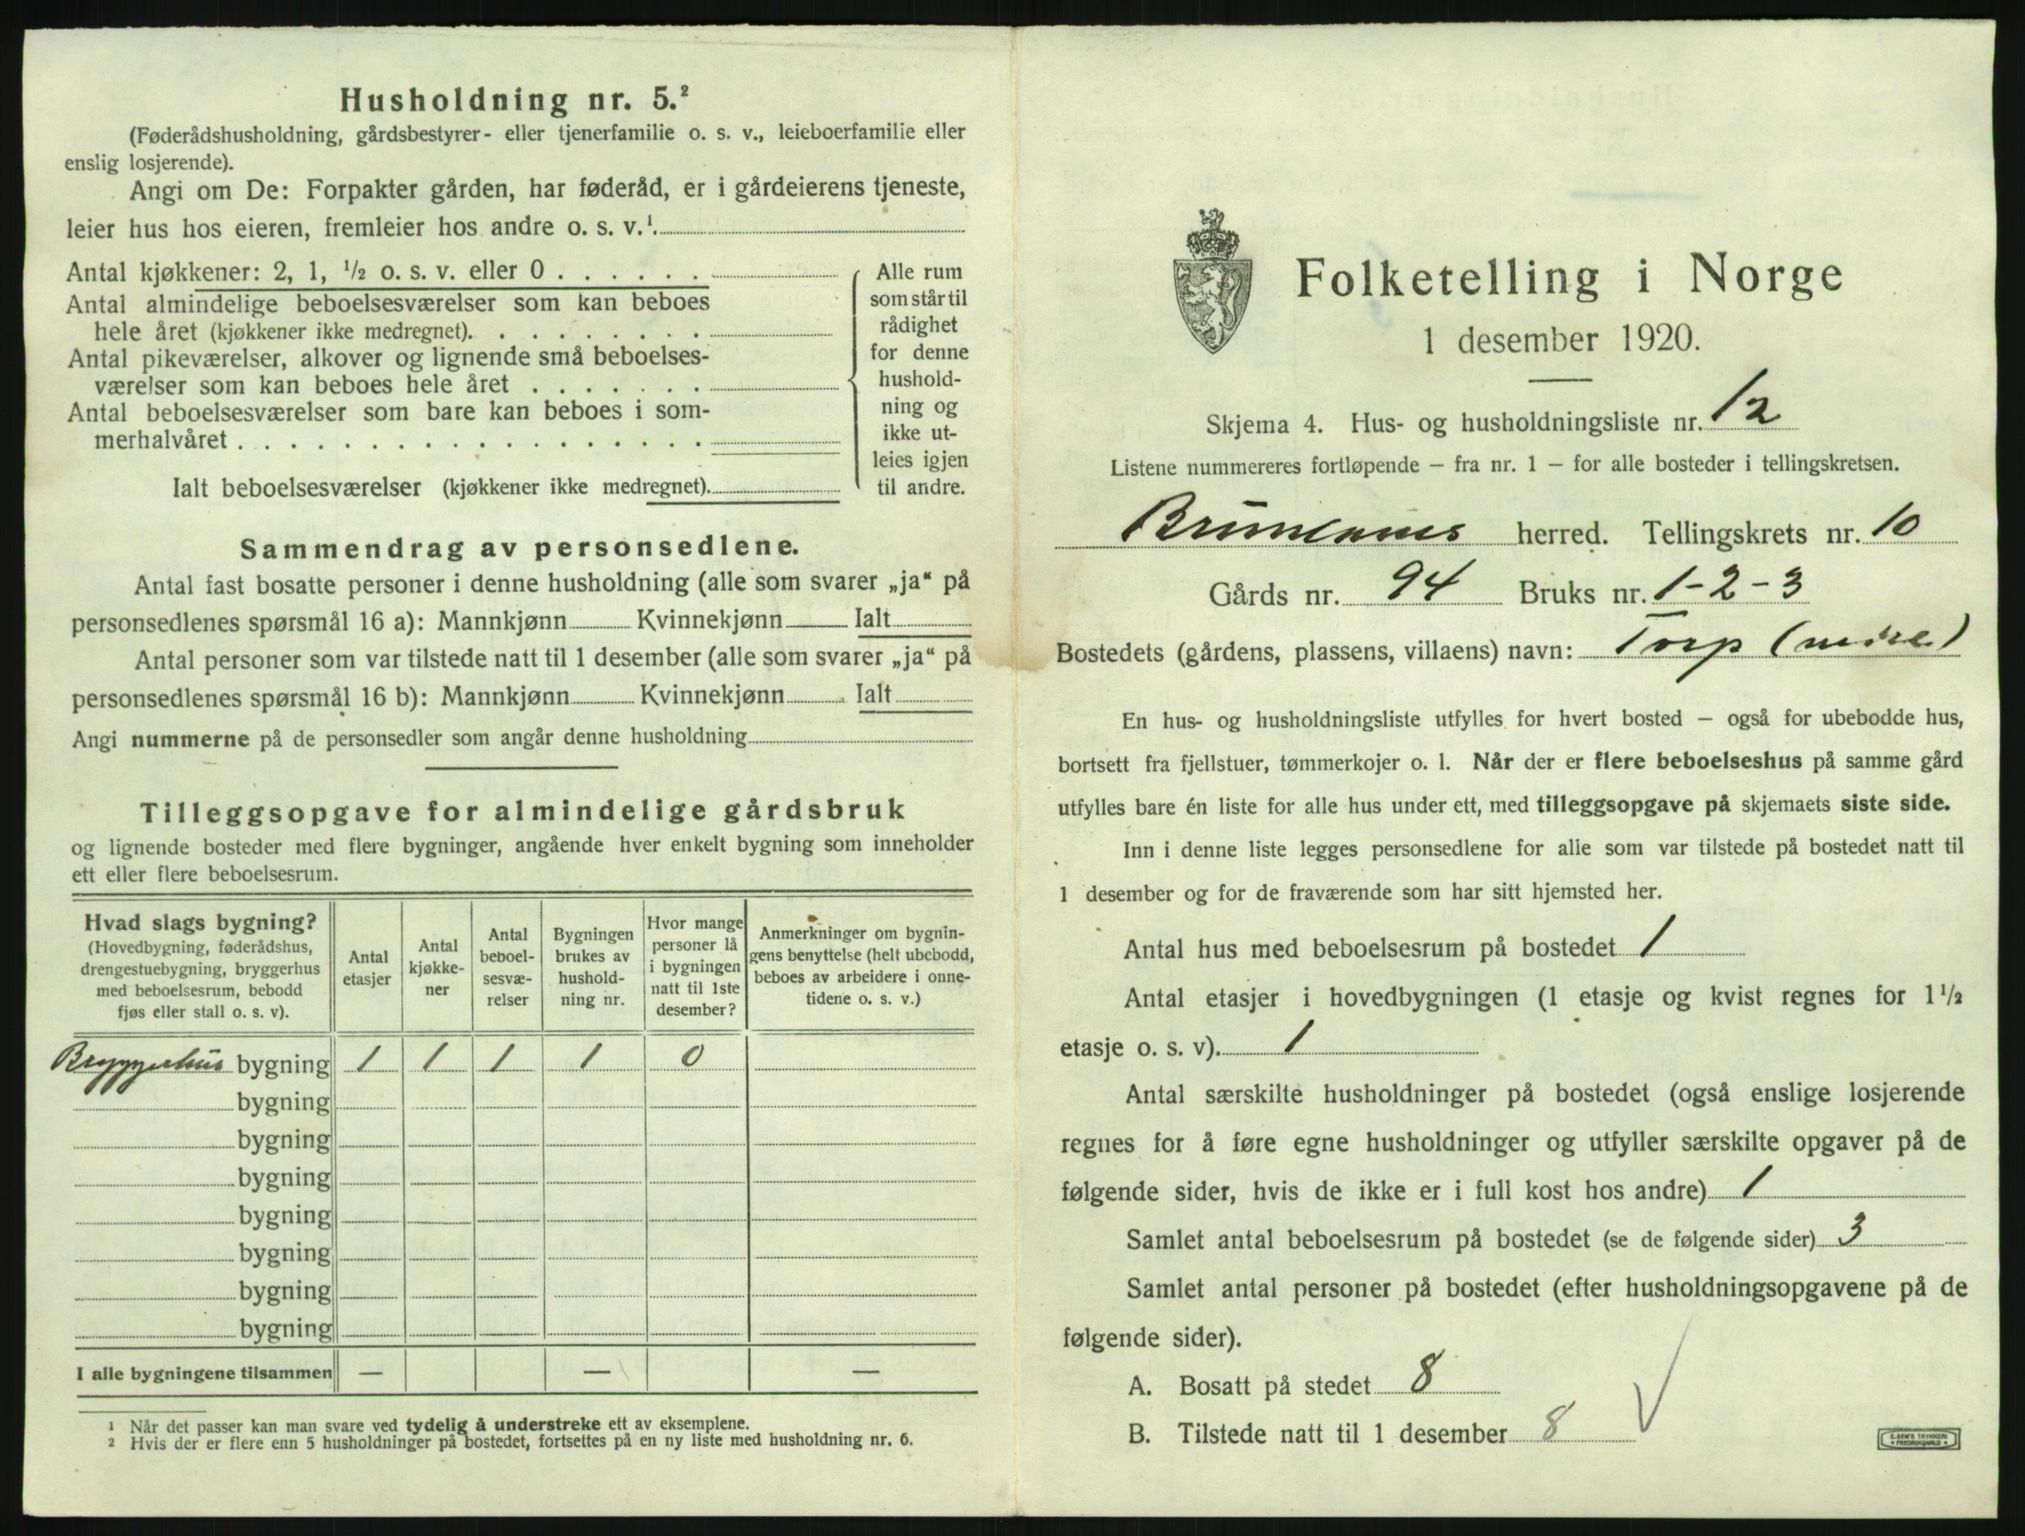 Husholdning nr. 5.²
(Føderådshusholdning, gårdsbestyrer- eller tjenerfamilie o. s. v., leieboerfamilie eller
enslig losjerende).
Angi om De: Forpakter gården, har føderåd, er i gårdeierens tjeneste,
leier hus hos eieren, fremleier hos andre o. s. v.¹
Antal kjøkkener: 2, 1, ½ o. s. v. eller 0 . . . . . .
Antal almindelige beboelsesværelser som kan beboes
hele året (kjøkkener ikke medregnet). . . . . . . .
Antal pikeværelser, alkover og lignende små beboelses-
værelser som kan beboes hele året . . . . . . .
Antal beboelsesværelser som bare kan beboes i som-
merhalvåret . . . . . . . . . . . . . . . . . .
Ialt beboelsesværelser (kjøkkener ikke medregnet).
Alle rum
som står til
rådighet
for denne
hushold-
ning og
ikke ut-
leies igjen
til andre.
Sammendrag av personsedlene.
Antal fast bosatte personer i denne husholdning (alle som svarer „ja“ på
personsedlenes spørsmål 16 a): Mannkjønn Kvinnekjønn Ialt
Antal personer som var tilstede natt til 1 desember (alle som svarer „ja“ på
personsedlenes spørsmål 16 b): Mannkjønn Kvinnekjønn Ialt
Angi nummerne på de personsedler som angår denne husholdning
Tilleggsopgave for almindelige gårdsbruk
og lignende bosteder med flere bygninger, angående hver enkelt bygning som inneholder
ett eller flere beboelsesrum.
Hvad slags bygning?
(Hovedbygning, føderådshus,
drengestuebygning, bryggerhus
med beboelsesrum, bebodd
fjøs eller stall o. s. v).
Antal
etasjer
Antal
kjøkke-
ner
Antal
beboel-
sesvæ-
relser
Bygningen
brukes av
hushold-
ning nr.
Hvor mange
personer lå
i bygningen
natt til 1ste
desember?
Anmerkninger om bygnin-
gens benyttelse (helt ubebodd,
beboes av arbeidere i onne-
tidene o. s. v.)
Bryggerhus bygning 1 1 1 1 0
bygning
bygning
bygning
bygning
bygning
bygning
bygning
I alle bygningene tilsammen — — —
¹ Når det passer kan man svare ved tydelig å understreke ett av eksemplene.
² Hvis der er flere enn 5 husholdninger på bostedet, fortsettes på en ny liste med husholdning nr. 6.
Folketelling i Norge
1 desember 1920.
Skjema 4. Hus- og husholdningsliste nr. 12
Listene nummereres fortløpende – fra nr. 1 – for alle bosteder i tellingskretsen.
Brunlanes herred. Tellingskrets nr. 10
Gårds nr. 94 Bruks nr. 1-2-3
Bostedets (gårdens, plassens, villaens) navn: Torp (nedre)
En hus- og husholdningsliste utfylles for hvert bosted – også for ubebodde hus,
bortsett fra fjellstuer, tømmerkojer o. l. Når der er flere beboelseshus på samme gård
utfylles bare én liste for alle hus under ett, med tilleggsopgave på skjemaets siste side.
Inn i denne liste legges personsedlene for alle som var tilstede på bostedet natt til
1 desember og for de fraværende som har sitt hjemsted her.
Antal hus med beboelsesrum på bostedet 1
Antal etasjer i hovedbygningen (1 etasje og kvist regnes for 1½
etasje o. s. v). 1
Antal særskilte husholdninger på bostedet (også enslige losjerende
regnes for å føre egne husholdninger og utfyller særskilte opgaver på de
følgende sider, hvis de ikke er i full kost hos andre) 1
Samlet antal beboelsesrum på bostedet (se de følgende sider) 3
Samlet antal personer på bostedet (efter husholdningsopgavene på de
følgende sider).
A. Bosatt på stedet 8
B. Tilstede natt til 1 desember 8